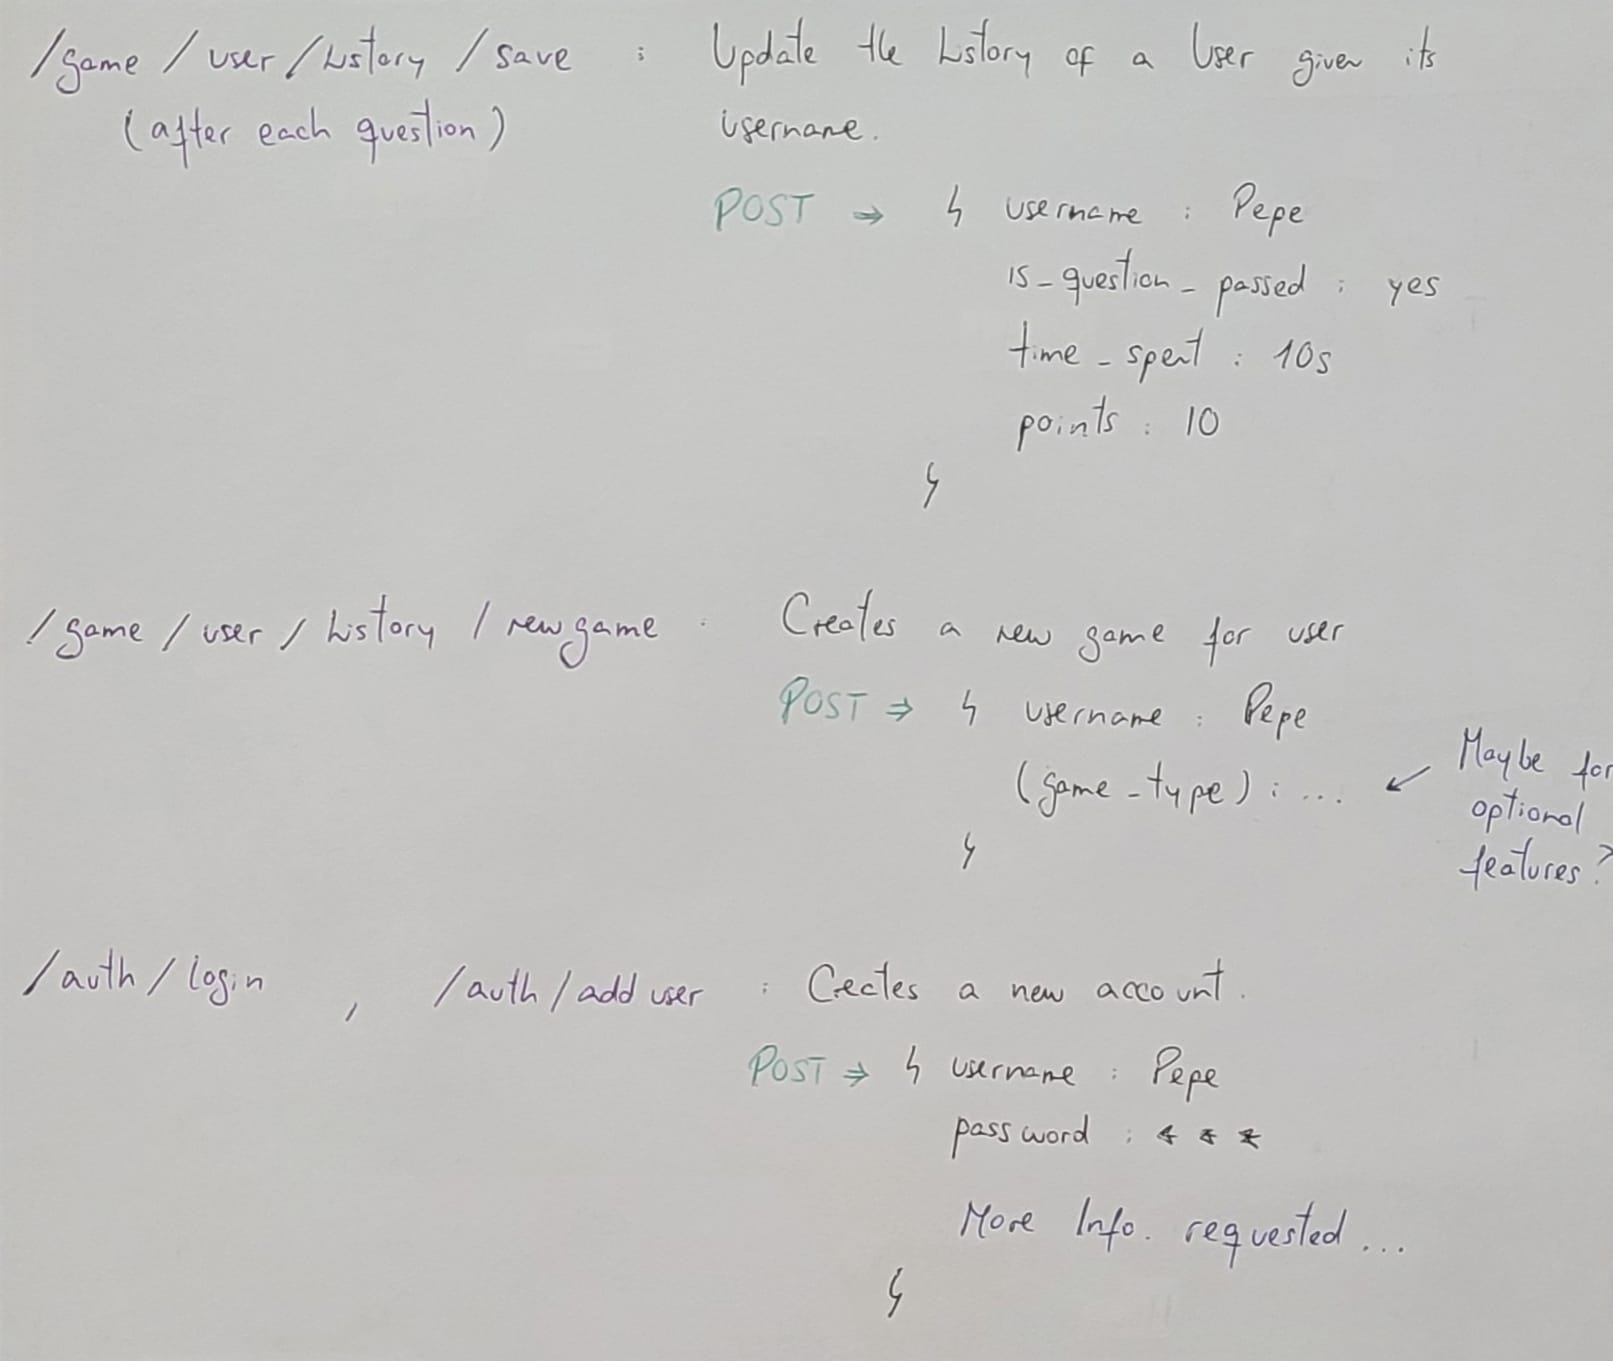 /game / user / history / save : Update the history of a User given its
(after each question) username.
POST ⇒ { username : Pepe
is_question_passed : yes
time_spent : 10s
points : 10
}
/game / user / history / newgame : Creates a new game for user
POST ⇒ { username : Pepe
(game_type) : ... ← Maybe for
optional
features?
}
/auth / login , /auth / adduser : Creates a new account.
POST ⇒ { username : Pepe
password : * * *
More Info. requested ...
}